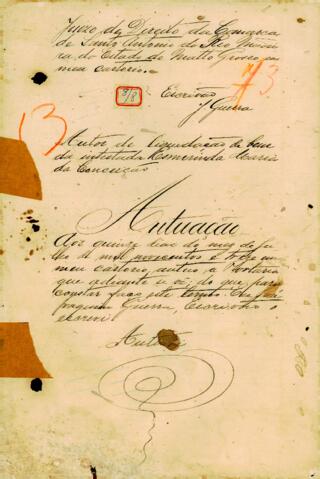 Juizo de Direito da Comarca
de Santo Antonio do Rio Madei
ra do Estado de Matto Grosso em
meu cartorio.
73
3/8
Escrivão
J. Guerra
13
Autos de liquidação de bens
da intestada Esmerinda Maria
da Conceição
Autuação
Aos quinze dias do mez de ju
lho de mil novecentos e treze em
meu cartorio, autuo a Portaria
que adiante se vê; do que para
constar faço este termo. Eu,
Joaquim Guerra, Escrivão o
escrevi